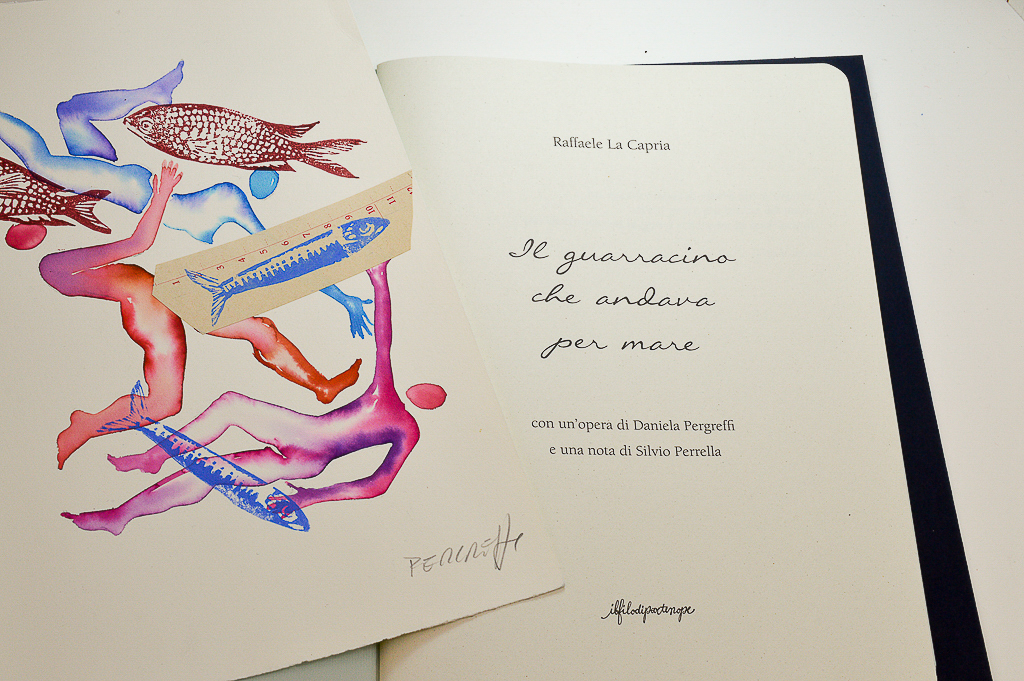 1 3 4 5 6 7 8 9 10 11 12
PERGREFFI
Raffaele La Capria
Il guarracino
che andava
per mare
con un'opera di Daniela Pergreffi
e una nota di Silvio Perrella
ilfilodipartenope